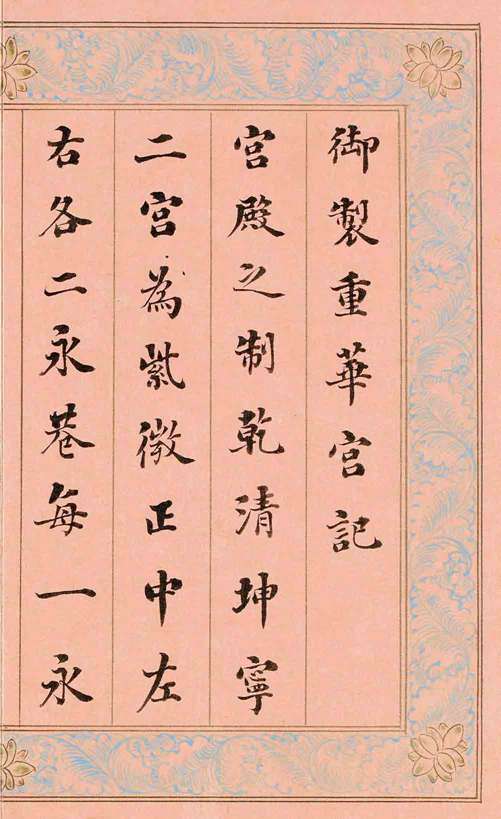 御製重華宮記
宮殿之制乾清坤寧
二宮為紫微正中左
右各二永巷每一永